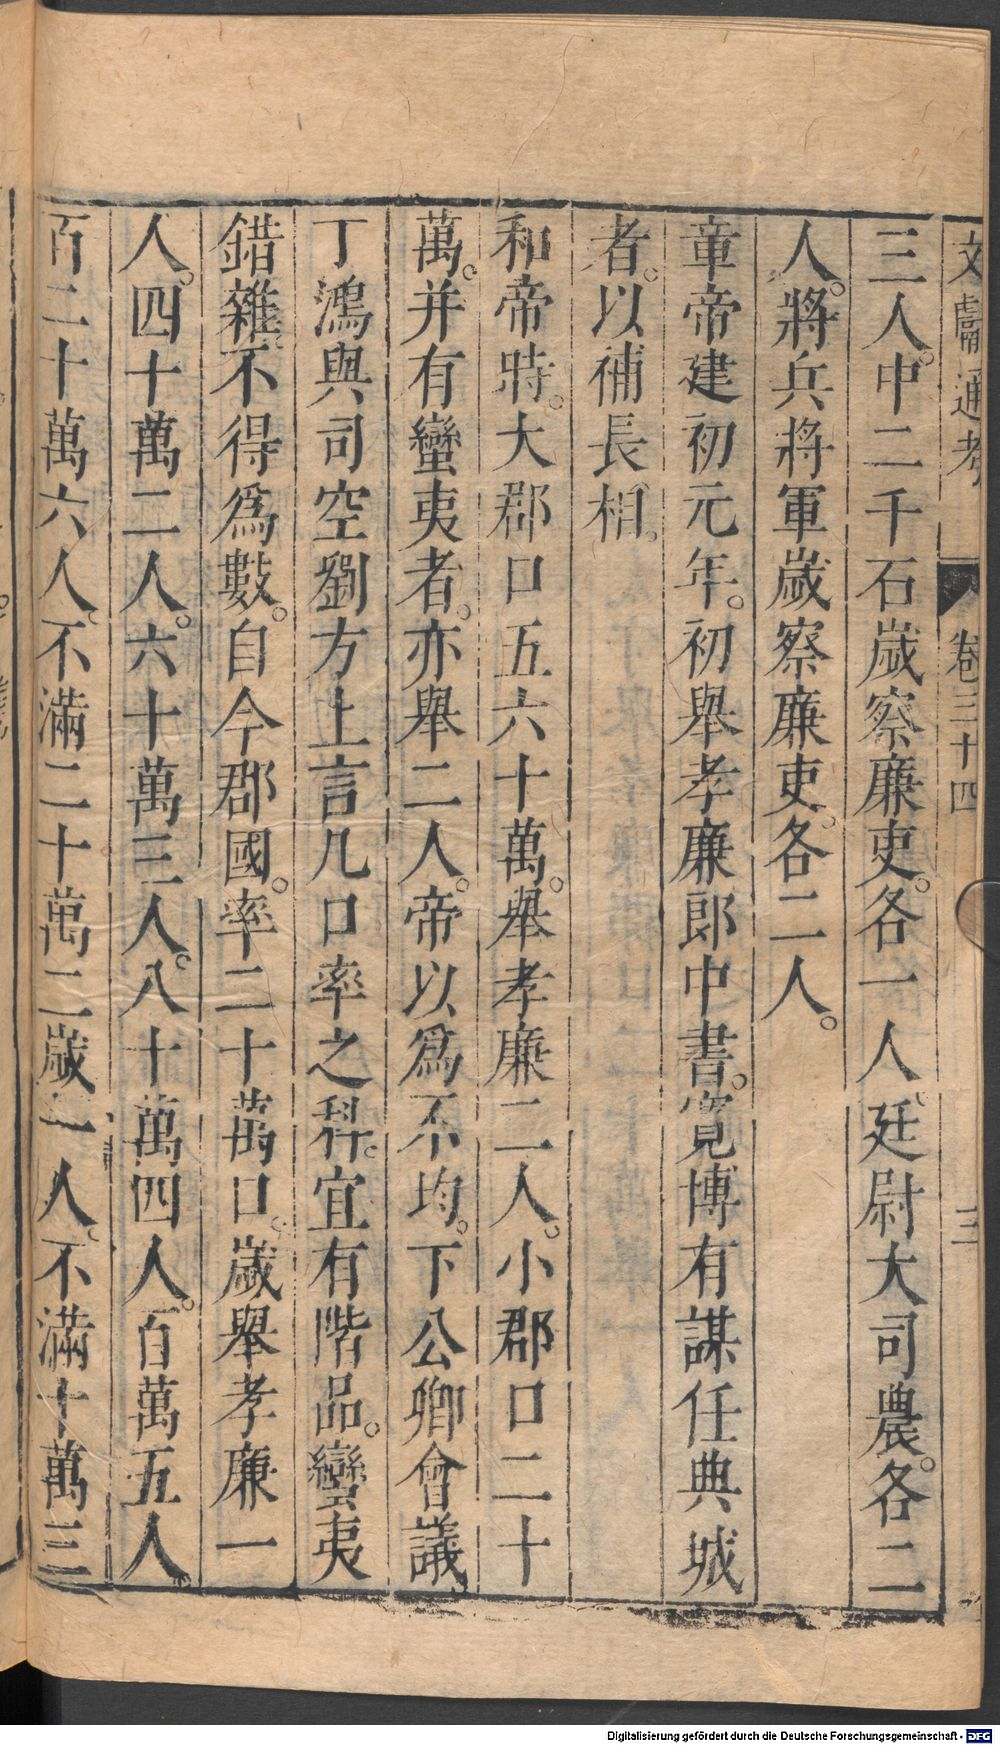 文獻通考 卷三十四 三
三人。中二千石歲察廉吏。各一人。廷尉大司農。各二
人。將兵將軍歲察廉吏。各二人。
章帝建初元年。初舉孝廉郎中書。寬博有謀任典城
者。以補長相。
和帝時。大郡口五六十萬。舉孝廉二人。小郡口二十
萬。并有蠻夷者。亦舉二人。帝以爲不均。下公卿會議。
丁鴻與司空劉方上言凡口率之科。宜有階品。蠻夷
錯雜。不得爲數。自今郡國。率二十萬口。歲舉孝廉一
人。四十萬二人。六十萬三人。八十萬四人。百萬五人。
百二十萬六人。不滿二十萬二歲一人。不滿十萬三
Digitalisierung gefördert durch die Deutsche Forschungsgemeinschaft - DFG